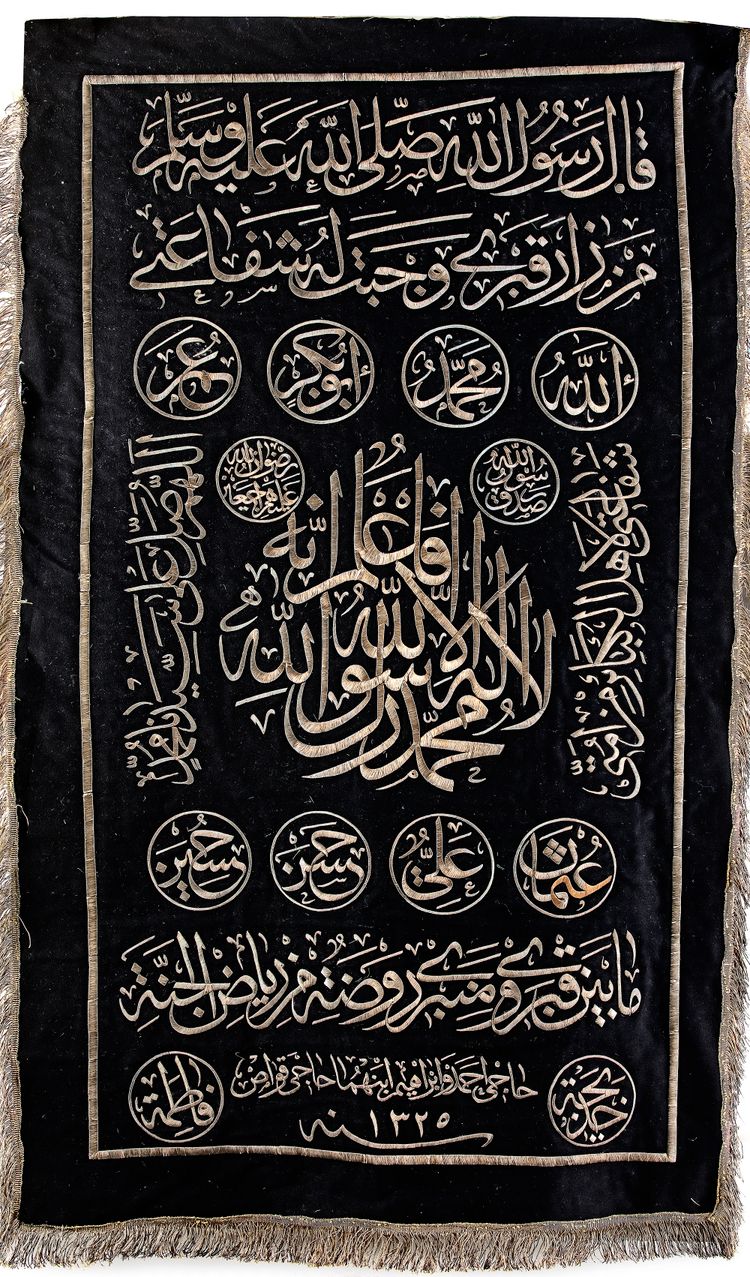 قال رسول الله صلى الله عليه وسلم
من زار قبري وجبت له شفاعتي
الله
محمد
أبو بكر
عمر
صدق رسول الله
رضوان الله عليهم أجمعين
شفاعتي لاهل الكبائر من امتي
فاعلم انه
لا اله الا الله
محمد رسول الله
اللهم صل على سيدنا محمد
عثمان
علي
حسن
حسين
ما بين قبري ومنبري روضة من رياض الجنة
خديجة
حاجى احمد وابراهيم ابنهما حاجى
سنه ١٣٢٥
فاطمة